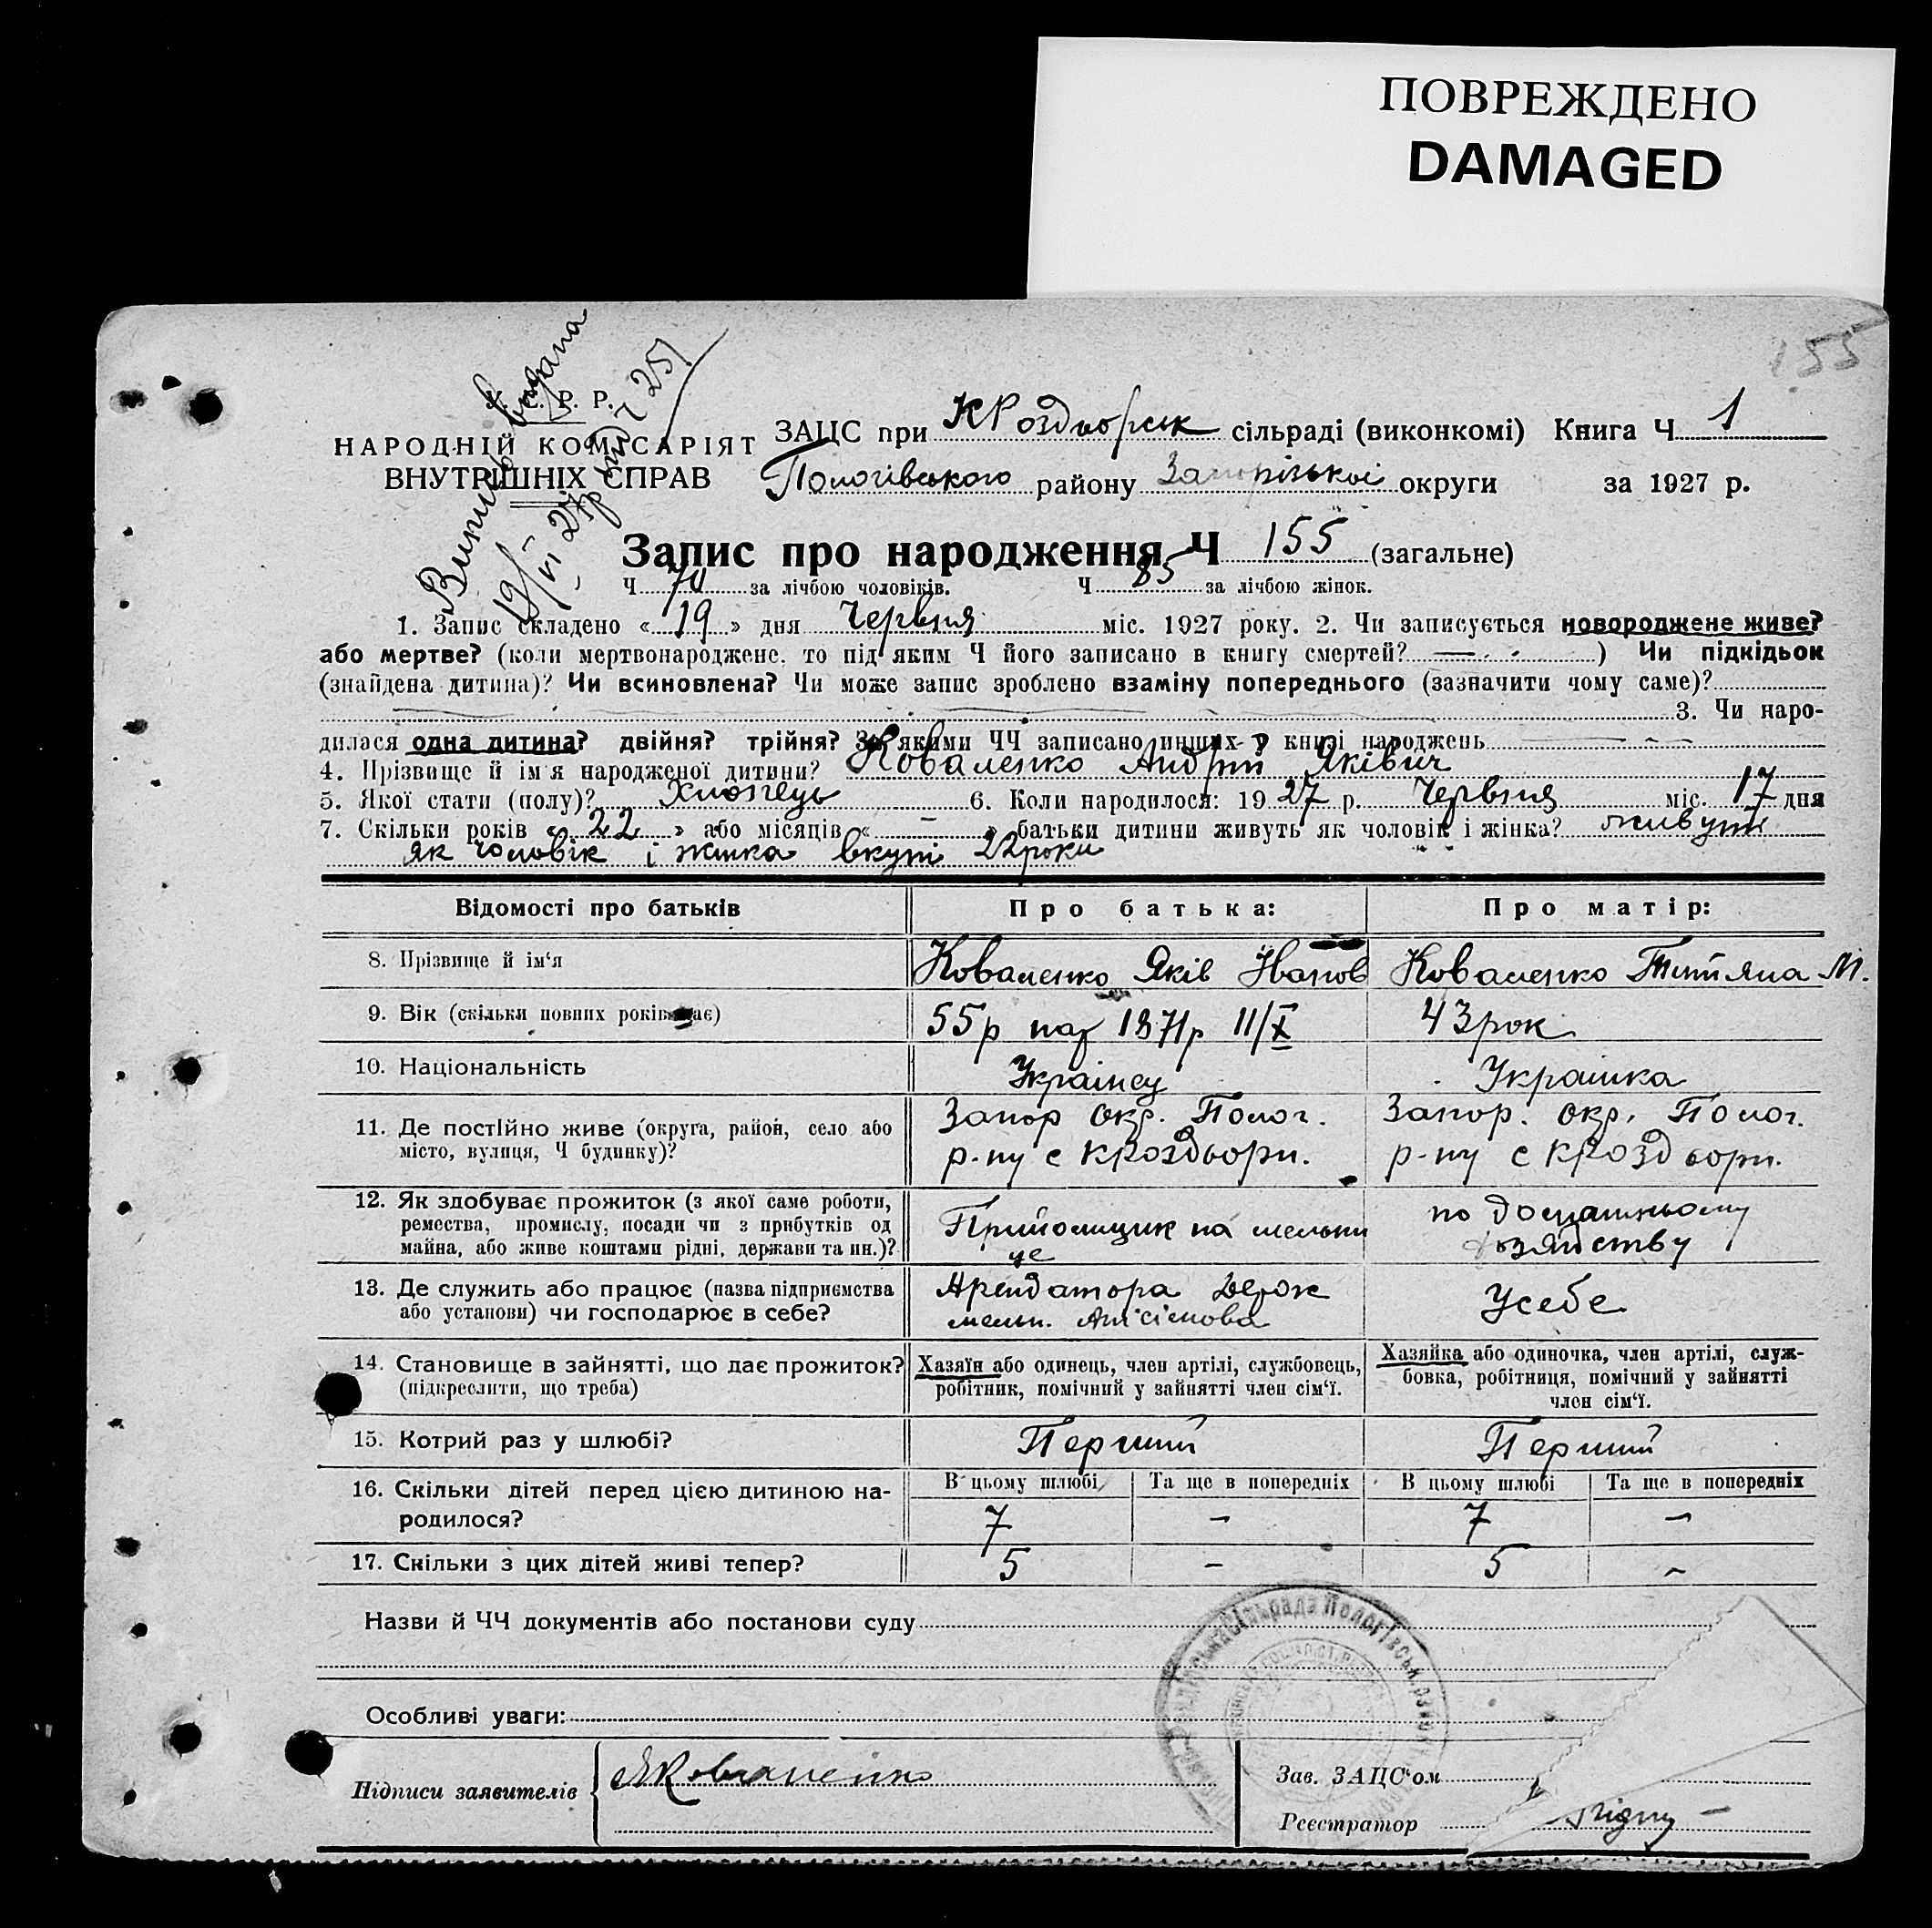 ПОВРЕЖДЕНО
DAMAGED
155
У. С. Р. Р.
НАРОДНІЙ КОМІСАРІЯТ
ВНУТРІШНІХ СПРАВ
Випись видана
19/VI 27р під ч 251
ЗАЦС при КРоздорськ сільраді (виконкомі) Книга Ч 1
Пологівського району Запорізькоі округи за 1927 р.
Запис про народження Ч 155 (загальне)
Ч 70 за лічбою чоловіків. Ч 85 за лічбою жінок.
1. Запис складено «19» дня Червня міс. 1927 року. 2. Чи записується новороджене живе?
або мертве? (коли мертвонароджене, то під яким Ч його записано в книгу смертей? — ) Чи підкідьок
(знайдена дитина)? Чи всиновлена? Чи може запис зроблено взаміну попереднього (зазначити чому саме)?
3. Чи наро-
дилася одна дитина? двійня? трійня? За якими ЧЧ записано инших у книзі народжень —
4. Прізвище й ім'я народженої дитини? Коваленко Андрій Яківич
5. Якої стати (полу)? Хлопець 6. Коли народилося: 1927 р. Червня міс. 17 дня
7. Скільки років «22» або місяців «–» батьки дитини живуть як чоловік і жінка? живуть
як чоловік і жінка вкупі 22 роки
Відомості про батьків Про батька: Про матір:
8. Прізвище й ім'я Коваленко Яків Іванов Коваленко Титяна М.
9. Вік (скільки повних років має) 55р нар 1871р 11/X 43 рок
10. Національність Украінец Украінка
11. Де постійно живе (округа, район, село або Запор окр. Полог. Запор. окр. Полог.
місто, вулиця, Ч будинку)? р-ну с КРоздворн. р-ну с КРоздворн.
12. Як здобуває прожиток (з якої саме роботи,
ремества, промислу, посади чи з прибутків од Прийомщик на мельни по домашньому
майна, або живе коштами рідні, держави та ин.)? це хозяйству
13. Де служить або працює (назва підприємства Арендатора Держ Усебе
або установи) чи господарює в себе? мельн. Анісімова
14. Становище в зайнятті, що дає прожиток? Хазяїн або одинець, член артілі, службовець, Хазяйка або одиночка, член артілі, служ-
(підкреслити, що треба) робітник, помічний у зайнятті член сім'ї. бовка, робітниця, помічний у зайнятті
член сім'ї.
15. Котрий раз у шлюбі? Перший Перший
16. Скільки дітей перед цією дитиною на- В цьому шлюбі Та ще в попередніх В цьому шлюбі Та ще в попередніх
родилося? 7 – 7 –
17. Скільки з цих дітей живі тепер? 5 – 5 –
Назви й ЧЧ документів або постанови суду
Сільрада Пологівськ.
Особливі уваги:
Підписи заявителів ЯКоваленко
Зав. ЗАЦС'ом
Реєстратор